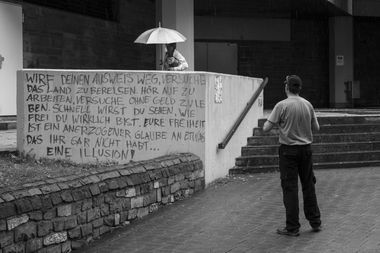 WIRF DEINEN AUSWEIS WEG, VERSUCHE
DAS LAND ZU BEREISEN. HÖR AUF ZU
ARBEITEN, VERSUCHE OHNE GELD ZU LE
BEN. SCHNELL WIRST DU SEHEN, WIE
FREI DU WIRKLICH BIST. EURE FREIHEIT
IST EIN ANERZOGENER GLAUBE AN ETWAS
DAS IHR GAR NICHT HABT...
EINE ILLUSION!